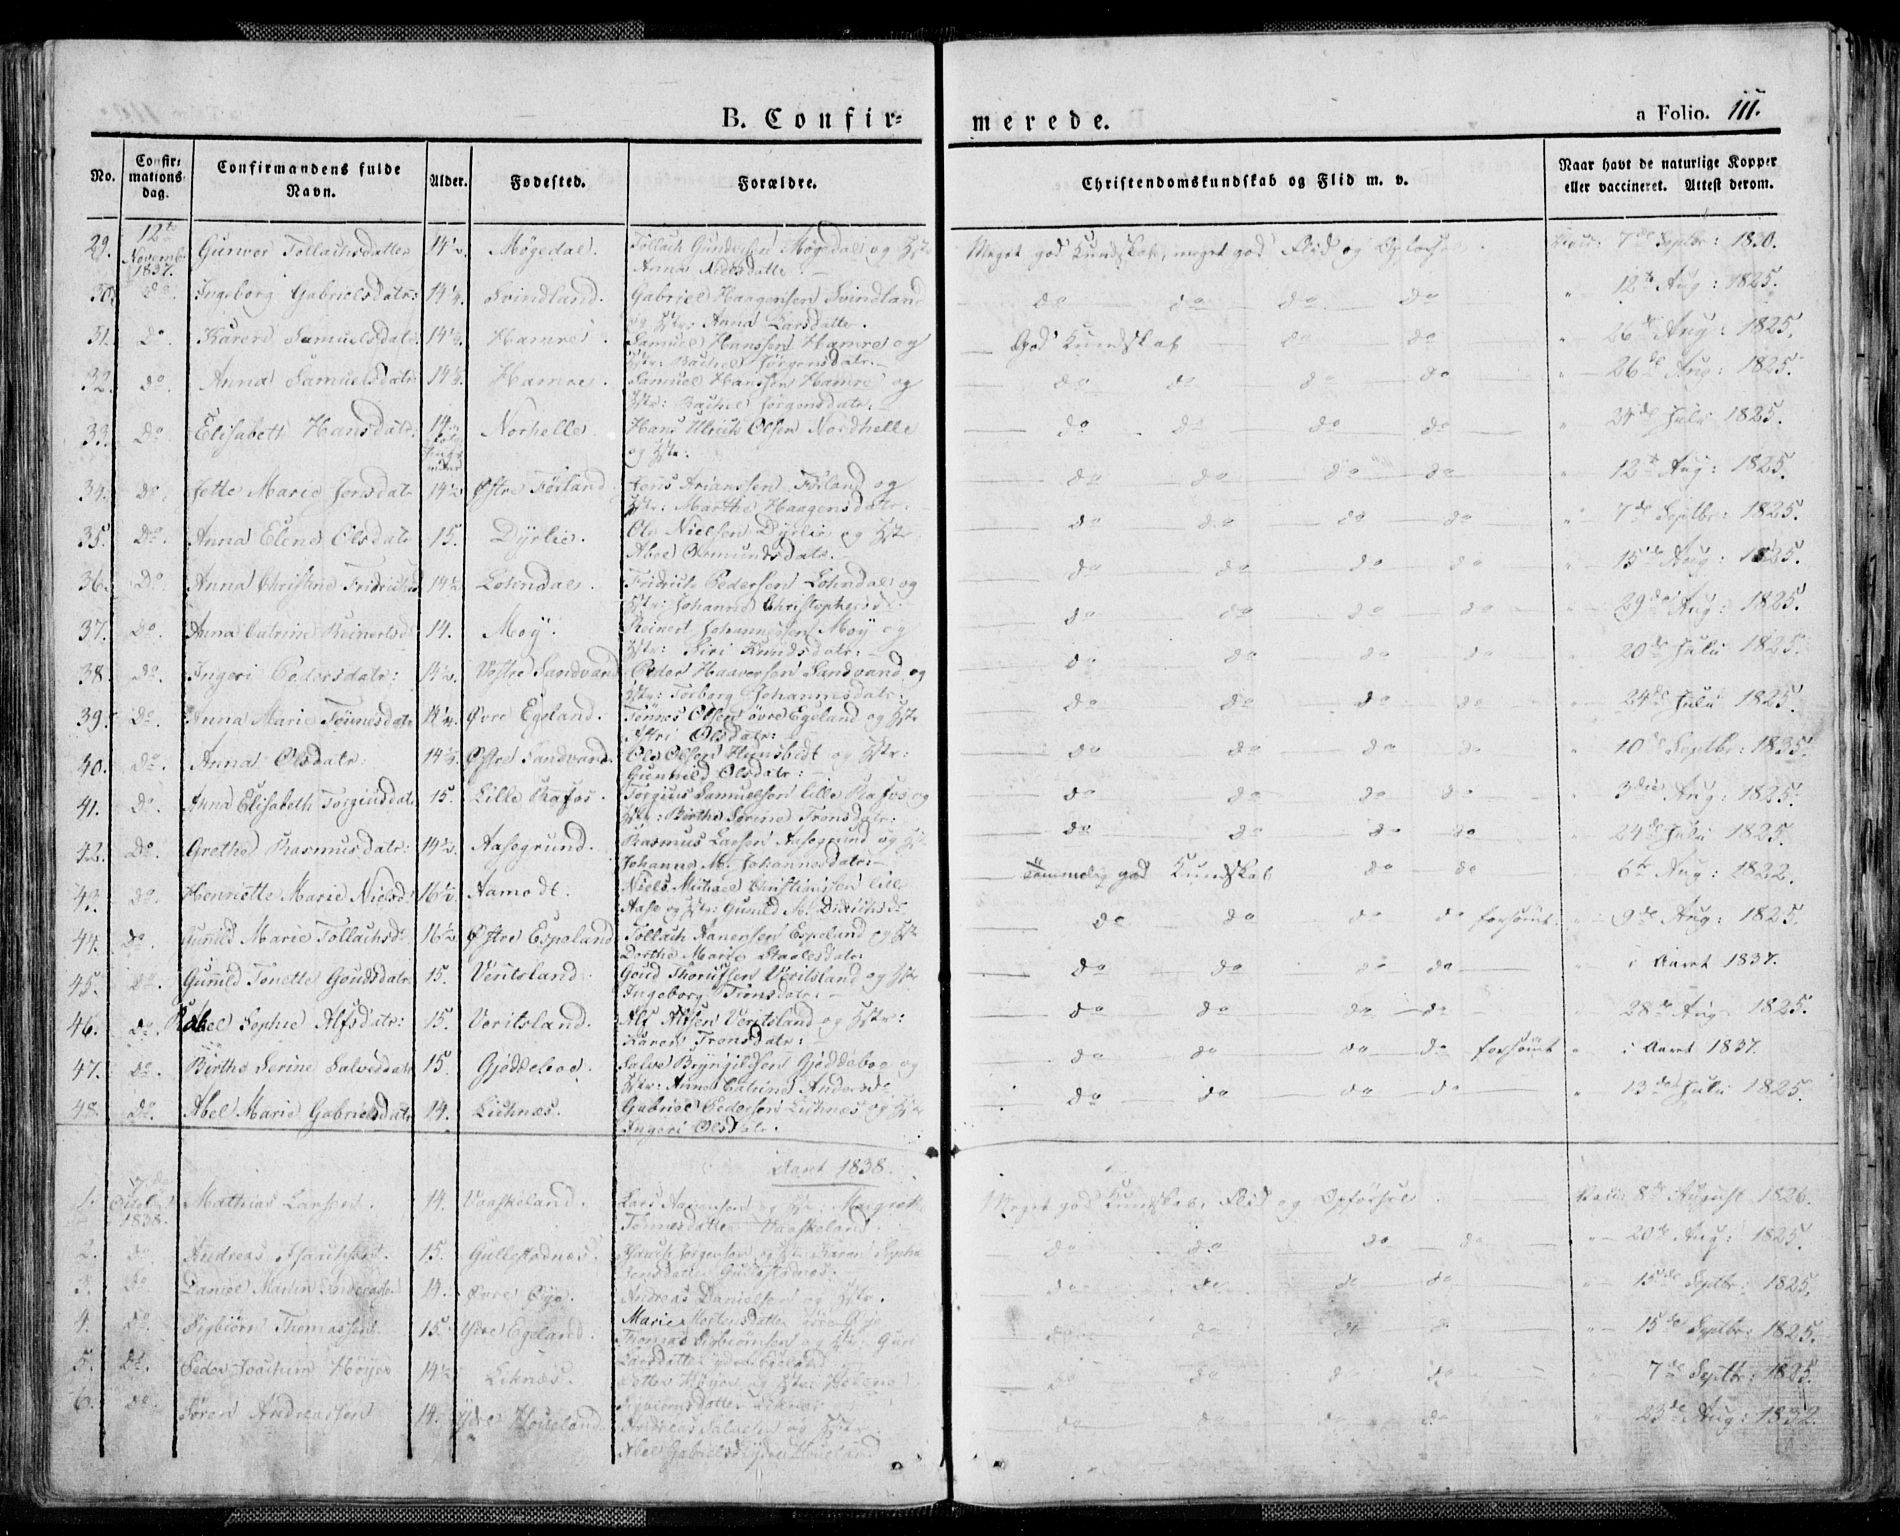 B. Confirmerede. a Folio. 111.
No. Confirmationsdag. Confirmandens fulde Navn. Alder. Fødested. Forældre. Christendomskundskab og Flid m. v. Naar havt de naturlige Kopper eller vaccineret. Attest derom.
29. 12te Novemb: 1837. Gunvor Tollachsdatter 14½. Møgedal. Tollach Gundersen Møgedal og Hstr Anna Meget god Kundskab, meget god Flid og Opførsel. 7de Septbr: 1830.
30. Do. Ingeborg Gabrielsdatr: 14½. Svindland. Gabriel Haagensen Svindland og Hstr: Anna Larsdatter. do do do do " 12te Aug: 1825.
31. Do. Karen Samuelsdatr 14½. Hamre. Samuel Hanssen Hamre og Hstr: Rachel Jørgensdatr. God Kundskab do do " 26de Aug: 1825.
32. do. Anna Samuelsdatr 14½. Hamre. Samuel Hanssen Hamre og Hstr: Rachel Jørgensdatr. do do do do " 26de Aug: 1825.
33. Do. Elisabeth Hansdatr. 14 Norhelle. Hans Ulrich Olsen Nordhelle og Hstr: do do do do " 24de Juli 1825.
34. do. Jette Marie Jensdatr 14½ Østre Føiland. Jens Arianssen Føiland og Hstr: Marthe Haagensdatr. do do do do " 12te Aug: 1825.
35. Do. Anna Elene Olsdatr 15. Dyrlie. Ole Nielsen Dyrlie og Hstr Abel Osmundsdatr. do do do do " 7de Septbr: 1825.
36. Do. Anna Christine 14½. Lohndal. Fridrich Pedersen Lohndal og Hstr: Johanne do do do do " 15de Aug: 1825.
37. Do. Anna Catrine Reinertsd 14. Moÿ. Reinert Johannessen Moÿ og Hstr: Siri Knudsdatr: do do do do 29de Aug: 1825.
38. Do. Ingeri Pedersdatr: 14½. Vestre Sandvand Peder Haaversen Sandvand og Hstr: Torborg Johannesdatr: do do do do 20de Juli 1825.
39. Do. Anna Marie Tønnesdatr 14½ Øvre Egeland. Tønnes Olsen øvre Egeland og Hstr Astri Olsdatr: do do do do 24de Juli 1825.
40. Do. Anna Olsdatr: 14½. Østre Sandvand. Ole Olsen og Hstr: Gunhild Olsdatr: do do do do 10de Septbr: 1835.
41. do. Anna Elisabeth Torgiusdatr 15. Lille Rafos. Torgius Samuelsen lille Rafos og Hstr: Birthe Serine Tronsdatr: do do do do 3die Aug: 1825.
42. Do. Grethe Rasmusdatr: 14½. Aasegrund. Rasmus Larsen Aasegrund og Hstr Johanne M. Johannesdatr: do do do do 24de Juli 1825.
43. do. Henriette Marie Nielsd: 16½. Aamodt. Niels Michael Christiansen lille Aase og Hstr: Gunild M. Didrichsdr Temmelig god Kundskab do do 6te Aug: 1822.
44. do. Gunild Marie Tollachsd: 16½ Østre Espeland Tollach Aanensen Espeland og Hstr Dorthe Marie Staalesdatr: do do do do forsømt. 9de Aug: 1825.
45. Do. Gunild Tonette Goudsdatr 15. Veritsland. Goud Veritsland og Hstr Ingeborg Tronsdatr: do do do do i Aaret 1837.
46. do. Rakel Sophie Alfsdatr: 15. Veritsland. Alf Alfsen Veritsland og Hstr: Karen Tronsdatr: do do do do 28de Aug 1825.
47. Do. Birthe Serine Salvesdatr 15. Gjøddeboe. Salve Gjøddeboe og Hstr: Anne Catrine Andersdr do do do do forsømt " i Aaret 1837.
48. Do. Abel Marie Gabrielsdatr 14. Lichnæs. Gabriel Pedersen Lichnæs og Hstr Ingeri Olsdatr. do do do do " 13de Juli 1825.
Aaret 1838.
1. 7de Octob: 1838. Mathias Larssen. 14. Vaaskeland. Lars Aanensen og Hstr: Margrethe Tønnesdatter Vaaskeland. Meget god Kundskab, Flid og Opførsel. 8de August 1826.
2. do Andreas 15. Jørgensen og Hstr Karen Sophie Jensdatter do do do do 20de Aug: 1825.
3. do Daniel Martin 14. Øvre Øye. Andreas Danielsen og Hstr. Marie Mortensdatter øvre Øye do do do do 15de Septbr: 1825.
4. do. Sigbiørn Thomassen. 15. Ydre Egeland. Thomas Sigbiørnsen og Hstr Guri Larsdatter ydre Egeland do do do do 15de Septbr: 1825.
5. Do. Peder Joachim Høyer 14½ Liknæs. Petter Høyer og Hstr: Helene Sigbiørnsdatter Liknæs do do do do 7de Septbr: 1825.
6. do. Søren Andreassen 14. Ydre Houeland. Andreas Salvesen og Hstr Abel Gabrielsd Ydre Houeland do do do do 23de Aug: 1832.